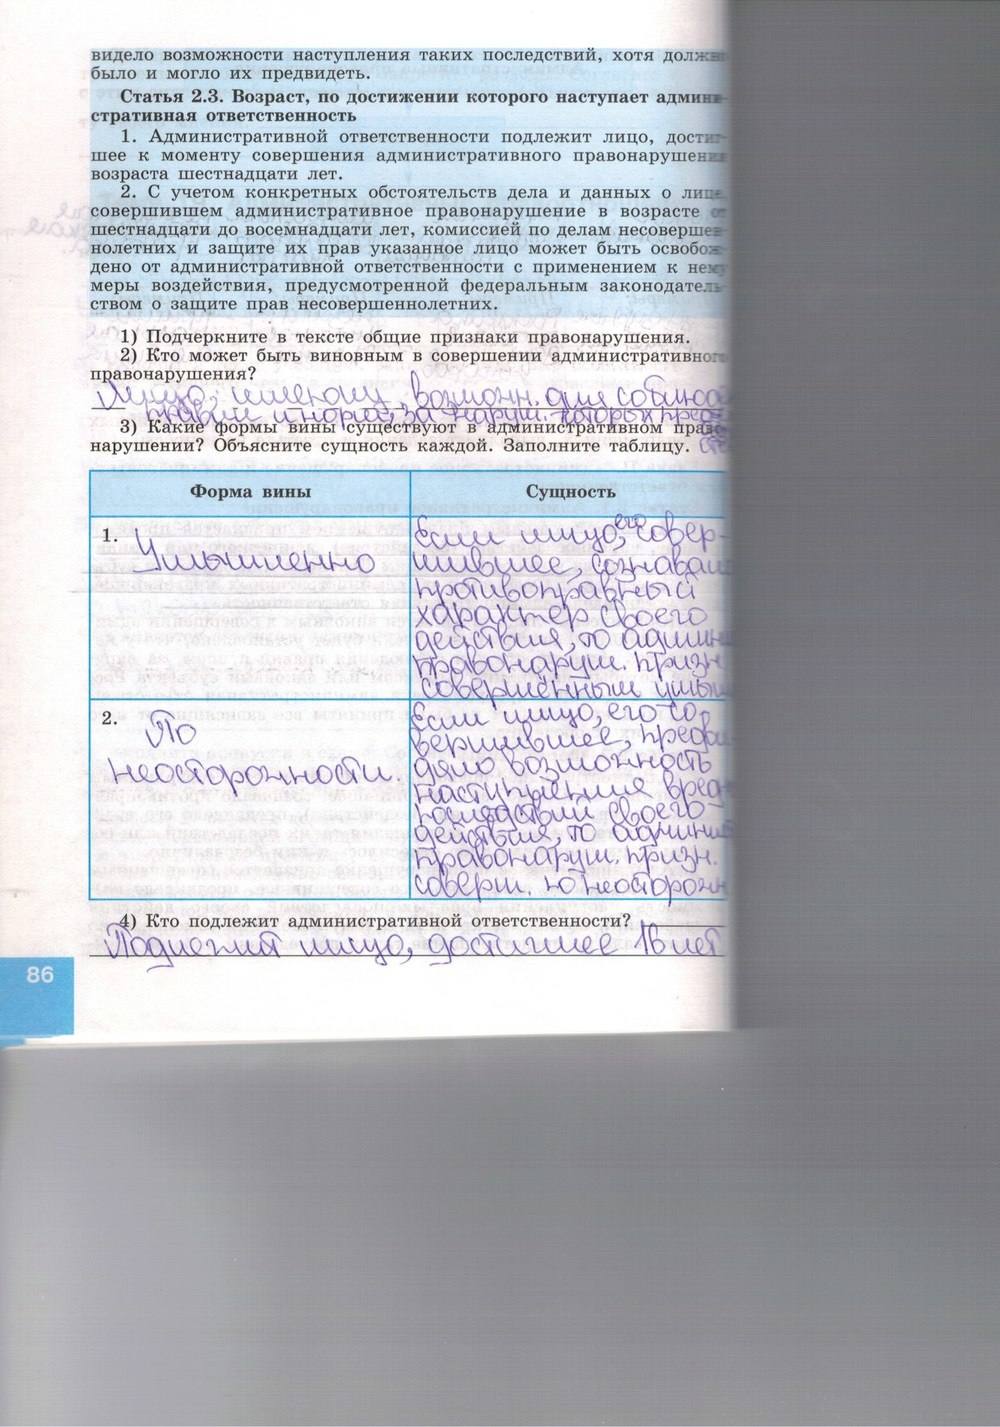 видело возможности наступления таких последствий, хотя должно
было и могло их предвидеть.
Статья 2.3. Возраст, по достижении которого наступает админи-
стративная ответственность
1. Административной ответственности подлежит лицо, достиг-
шее к моменту совершения административного правонарушения
возраста шестнадцати лет.
2. С учетом конкретных обстоятельств дела и данных о лице,
совершившем административное правонарушение в возрасте от
шестнадцати до восемнадцати лет, комиссией по делам несовершен-
нолетних и защите их прав указанное лицо может быть освобож-
дено от административной ответственности с применением к нему
меры воздействия, предусмотренной федеральным законодатель-
ством о защите прав несовершеннолетних.
1) Подчеркните в тексте общие признаки правонарушения.
2) Кто может быть виновным в совершении административного
правонарушения?
Лицо, возможн. для соблюд
правил и норм, за наруш. которых
3) Какие формы вины существуют в административном право-
нарушении? Объясните сущность каждой. Заполните таблицу.
Форма вины
Сущность
1. Умышленно
Если лицо, его совер-
шившее, сознавал
противоправный
характер своего
действия, то админ
правонаруш. призн.
совершенным умыш
2. По
неосторожности.
Если лицо, его со-
вершившее, предви-
дело возможность
наступления вредн
последствий своего
действия, то админис
правонаруш. призн.
соверш. по неосторожн
4) Кто подлежит административной ответственности?
Подлежит лицо, достигшее 16 лет
86